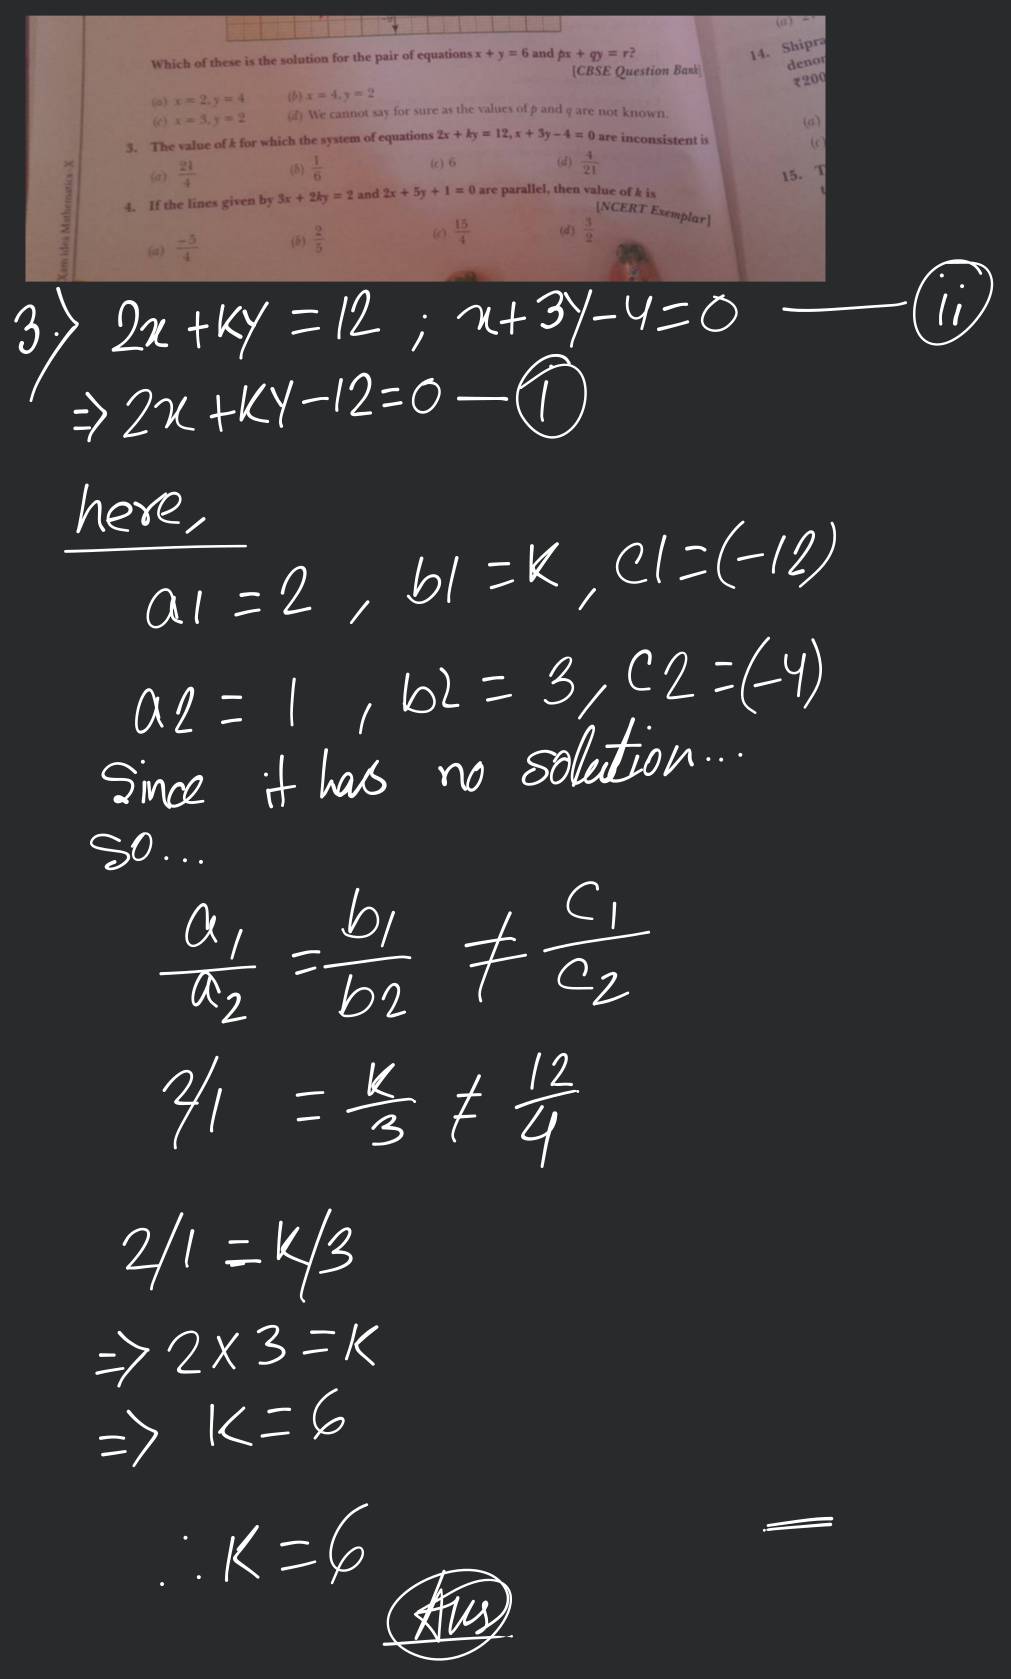 Which of these is the solution for the pair of equations x + y = 6 and px + qy = r?
[CBSE Question Bank]
(a) x = 2, y = 4 (b) x = 4, y = 2
(c) x = 3, y = 2 (d) We cannot say for sure as the values of p and q are not known.
3. The value of k for which the system of equations 2x + ky = 12, x + 3y – 4 = 0 are inconsistent is
(a) 21/4 (b) 1/6 (c) 6 (d) 4/21
4. If the lines given by 3x + 2ky = 2 and 2x + 5y + 1 = 0 are parallel, then value of k is
[NCERT Exemplar]
(a) –5/4 (b) 2/5 (c) 15/4 (d) 3/2
Xam idea Mathematics–X
14. Shipra
denor
₹200
(a)
(c)
15. T
3.) 2x + Ky = 12 ; x + 3y – 4 = 0 — ii
⇒ 2x + Ky – 12 = 0 — i
here,
a1 = 2 , b1 = K , c1 = (–12)
a2 = 1 , b2 = 3, c2 = (–4)
Since it has no solution...
so...
a1/a2 = b1/b2 ≠ c1/c2
2/1 = K/3 ≠ 12/4
2/1 = K/3
⇒ 2 x 3 = K
⇒ K = 6
∴ K = 6
Ans